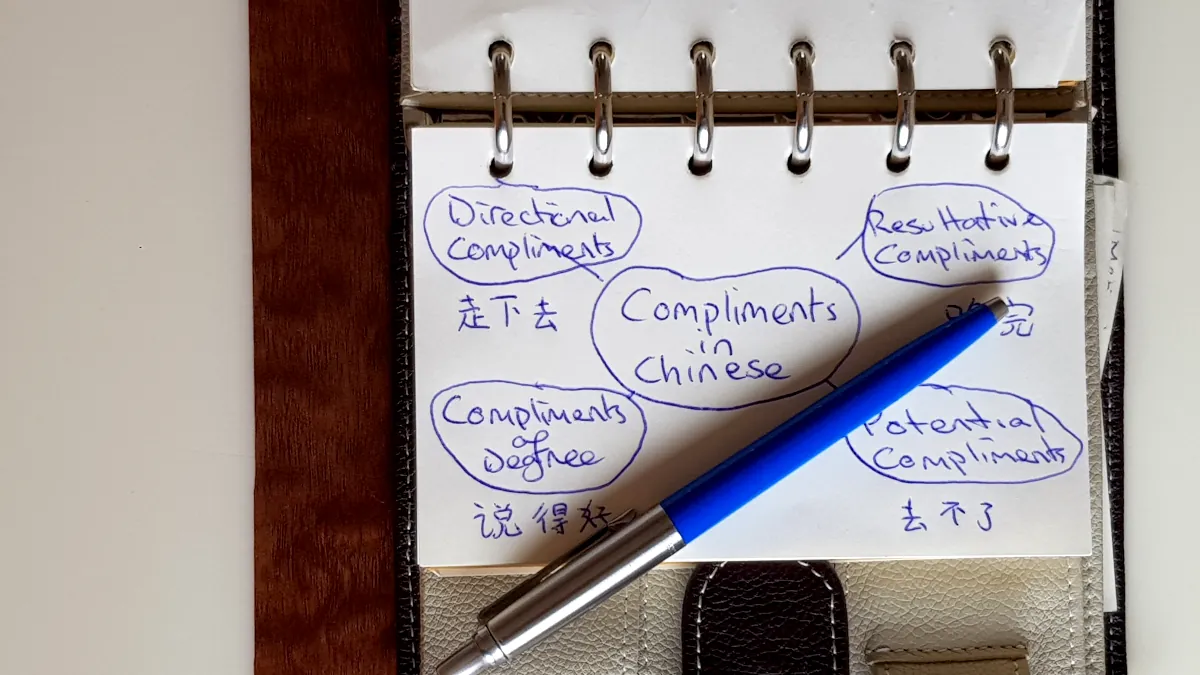 Directional
Compliments
走下去
Resultative
Compliments
完
Compliments
in
Chinese
Compliments
of
Degree
说得好
Potential
Compliments
去不了